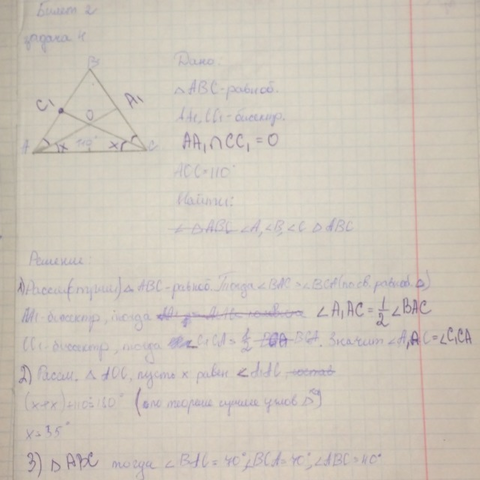 Билет 2
задача 4
B
C₁
O
A₁
A
x
110°
x
C
Дано:
△ABC-равноб.
AA₁, CC₁-биссектр.
AA₁∩CC₁=O
AOC=110°
Найти:
∠A, ∠B, ∠C △ABC
Решение:
1) △ABC-равноб. Тогда ∠BAC=∠BCA (по св. равноб △)
AA₁-биссектр, тогда ∠A₁AC=1/2∠BAC
CC₁-биссектр, тогда C₁CA=1/2 BCA. Значит ∠A₁AC=∠C₁CA
2) Рассм. △AOC, пусть x равен
(x+x)+110=180° (по теореме сумме углов △)
x=35°
3) △ABC тогда ∠BAC=70°, ∠BCA=70°, ∠ABC=40°